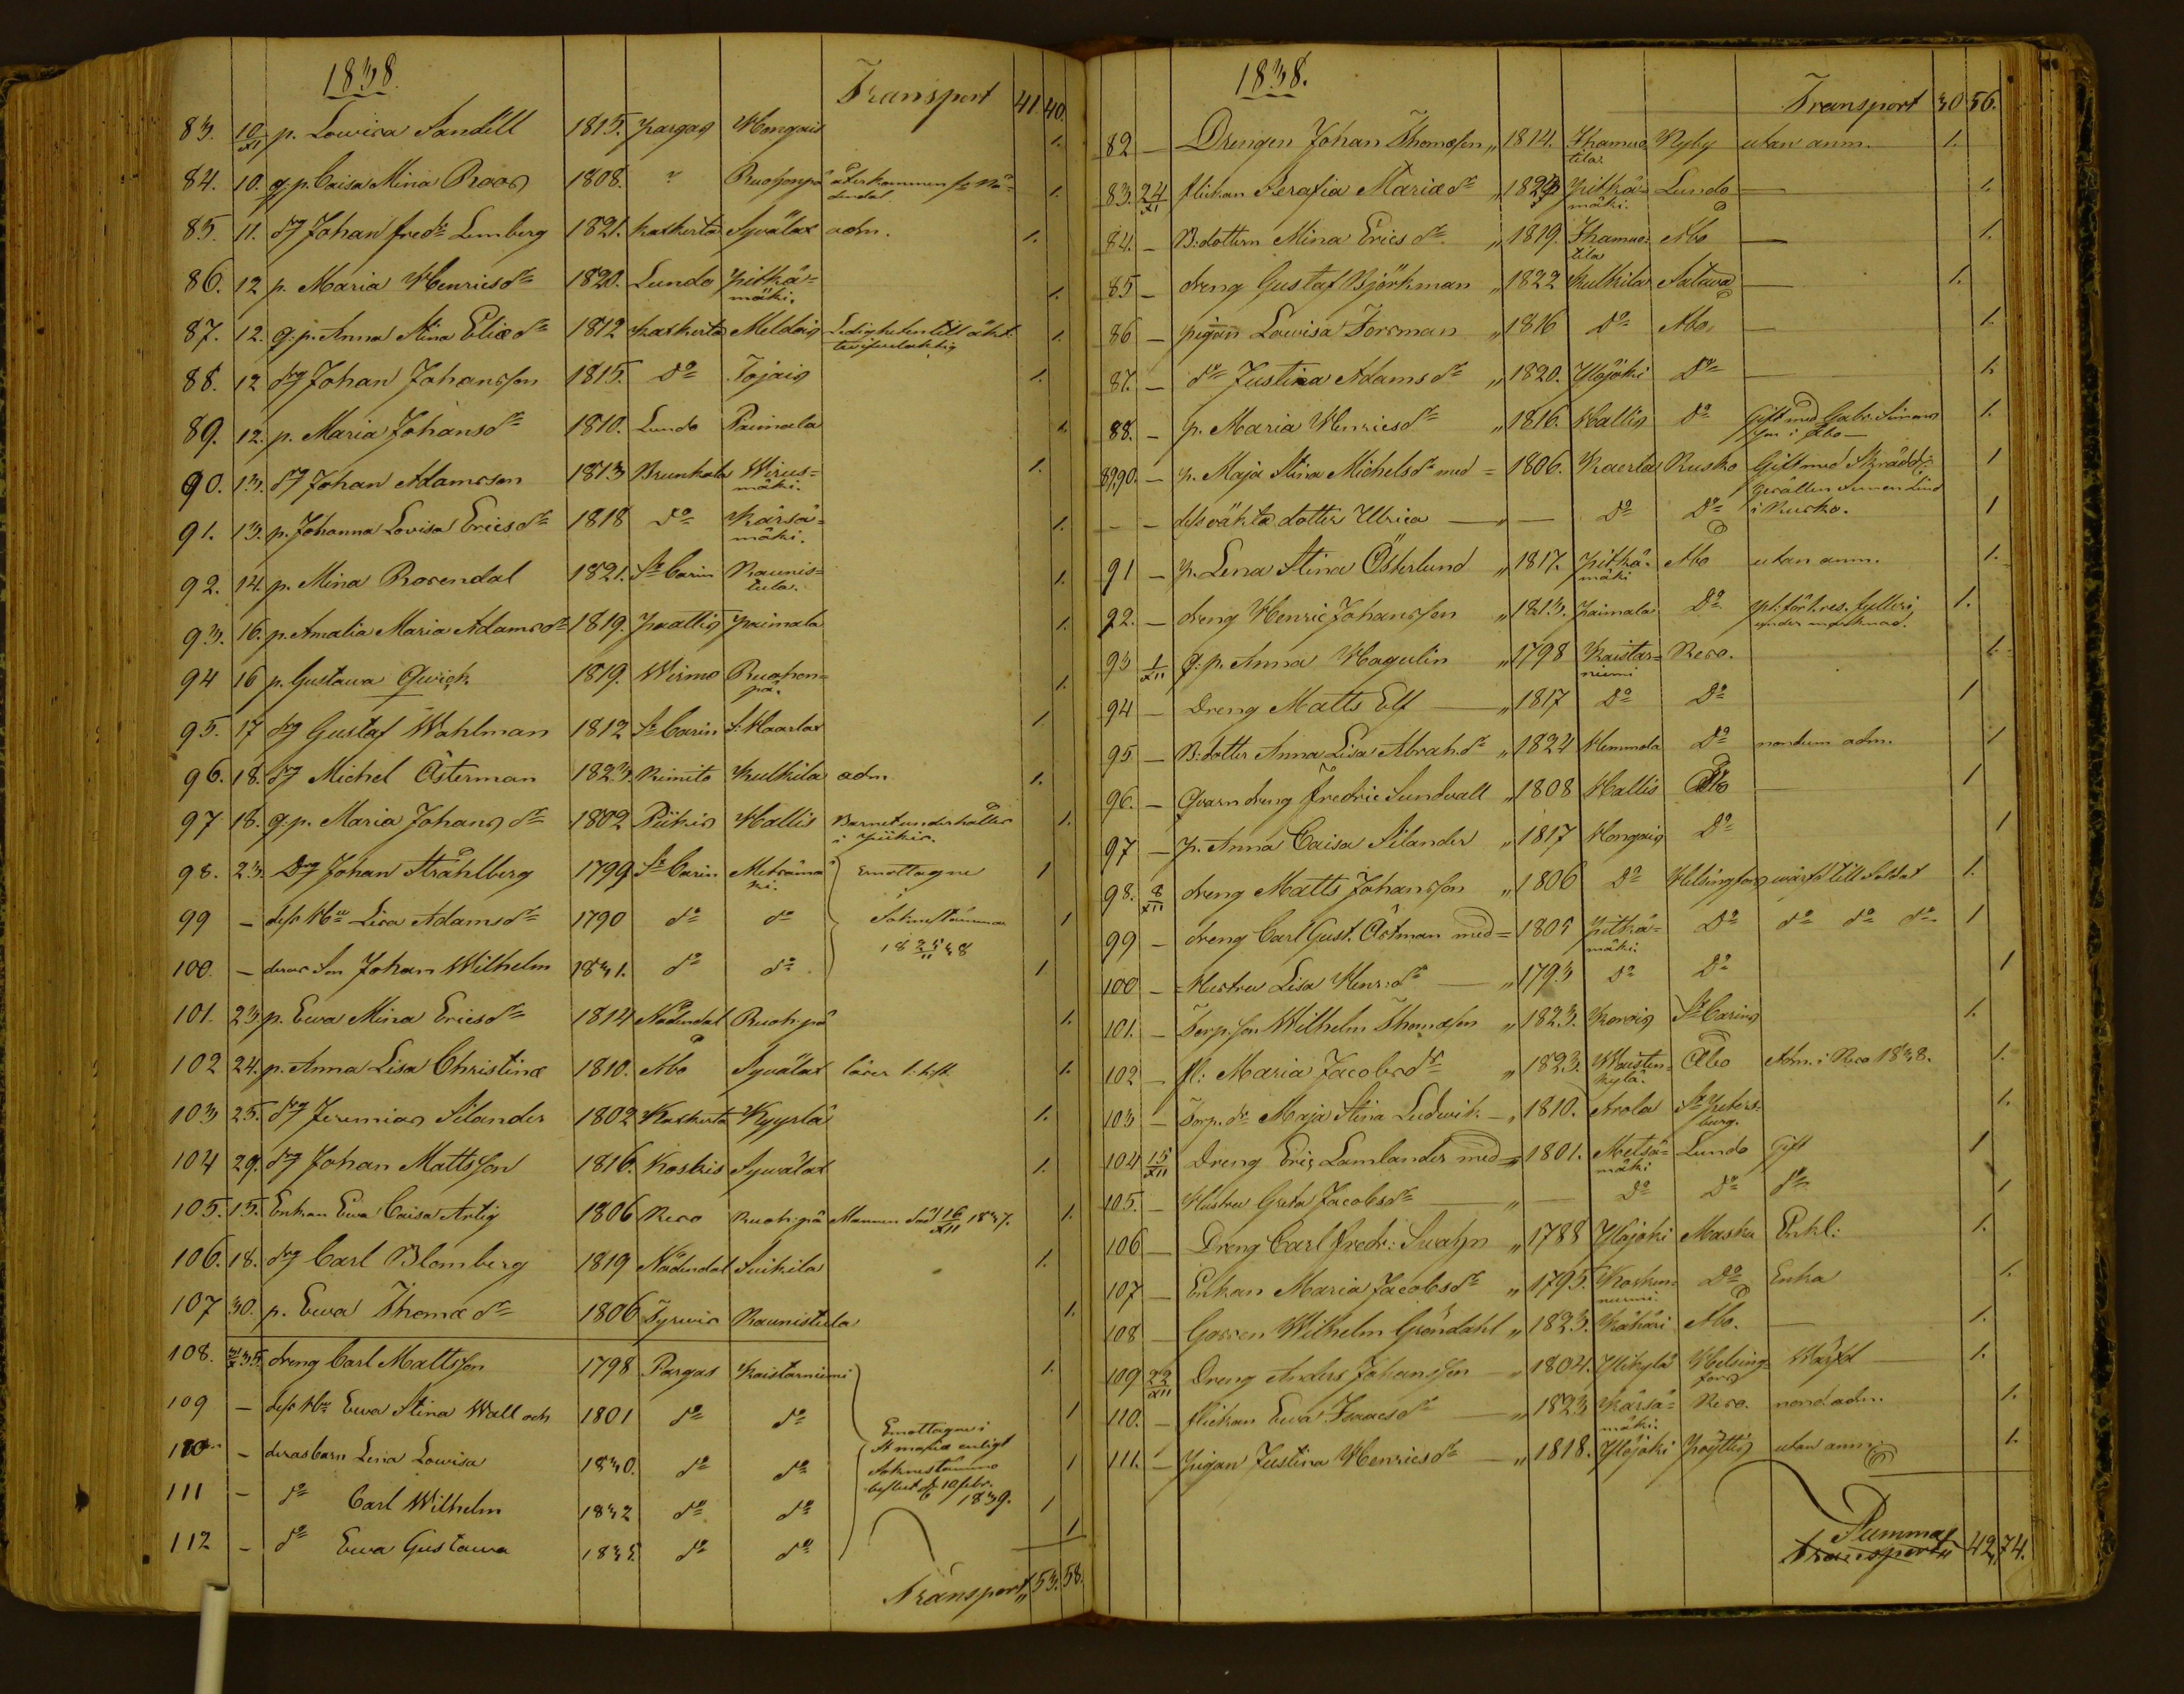 1838.
Transport 41. 40.
83. 10/XI p. Lowisa Sandell 1815. Pargas Hongais 1.
84. 10. g: p. Caisa Mina Roos 1808. " Ruohonpä återkommen fr Nå= 1.
dendal.
85. 11. dg Johan Fredr Lemberg 1821. Kakskerta Syvälax adm. 1.
86. 12 p. Maria Henricsdr 1820. Lundo Pitkä= 1.
mäki.
87. 12. g: p. Anna Stina Eliædr 1812 Kakskerta Meldois Ledigheten till äkt. 1.
twifvelaktig
88. 12 dg Johan Johansson 1815. Do Tojais 1.
89. 12. p. Maria Johansdr 1810. Lundo Paimala 1.
90. 13. dg Johan Adamsson 1813 Brunkala Wirus= 1.
mäki.
91. 13. p. Johanna Lovisa Ericsdr 1818 Do Kärsä= 1.
mäki.
92. 14. p. Mina Rosendal 1821. St Carin Raunis= 1.
tula.
93. 16. p. Amalia Maria Adamsdr 1819. Paattis Paimala 1.
94 16 p. Gustava Qwick 1819. Wirmo Ruohon= 1.
pä.
95. 17 dg Gustaf Wahlman 1812 St Carin S: Haarlax 1.
96. 18. dg Michel Österman 1823. Rimito Kulkila adm. 1.
97 18. g: p. Maria Johansdr 1802 Piikis Hallis Barnet underhålles 1.
i Piikis.
98. 23. Dg Johan Stråhlberg 1799 St Carin Metsämä Emottagne 1
ki.
99 – dess Hu Lisa Adamsdr 1790 do do Soknestämman 1
18 25/11 38
100. – deras Son Johan Wilhelm 1831. do do 1
101. 23 p. Ewa Mina Ericsdr 1814 Nådendal Ruoh:pä 1.
102 24. p. Anna Lisa Christinæ 1810. Åbo Syvälax 1.
103 25. dg Jeremias Silander 1802 Kakskerta Kyyrlä 1.
104 29. dg Johan Mattsson 1816. Koskis Syvälax 1.
105. 15. Enkan Ewa Caisa Artig 1806 Reso Ruoh:pä Mannen död 16/XII 1837. 1.
106. 18. dg Carl Blomberg 1819 Nådendal Suikila 1.
107 30. p. Ewa Thomædr 1806 Tyrvis Raunistula 1.
108. dreng Carl Mattsson 1798 Pargas Kaistarniemi 1.
109 – dess Hu Ewa Stina Wall och 1801 do do Emottagne i 1
St Maria enligt
110 – deras barn Lena Lowisa 1830. do do Sokneståmmo 1
beslut d. 10 febr.
1839.
111 – do Carl Wilhelm 1832 do do 1
112 – do Ewa Gustawa 1835. do do 1
Transport 53. 58.
1838.
Transport 30 56.
82 – Drengen Johan Thomasson " 1814. Ihamuo Nyby utan anm. 1.
tila.
83. 24/XI flickan Serafia Mariædr " 1823 Pitkä= Lundo — 1.
mäki.
84. – B:dottern Mina Ericsdr " 1819. Ihamuo= Åbo — 1.
tila
85 – dreng Gustaf Björkman " 1822 Kulkila Satava — 1.
86 – pigan Lowisa Forsman " 1816 Do Åbo — 1.
87. – do Justina Adamsdr " 1820. Ylöjoki Do — 1.
88. – p. Maria Henricsdr " 1816. Hallis Do Gift med Gabr. Simons 1.
son i Åbo —
89.90. – p. Maja Stina Michelsdr med = 1806. Kaerla Rusko Gift med Skrädd: 1
gesällen Simon Lind
– – dess oäkta dotter Ulrica — " — Do Do i Rusko. 1
91 – p. Lena Stina Österlund " 1817. Pitkä= Åbo utan anm. 1.
mäki
92. – dreng Henric Johansson " 1813. Paimala Do pl. för 1. res. fylleri 1.
under marknad.
93 1/XII g: p. Anna Hagelin " 1798 Kaistar= Reso. 1.
niemi
94 – Dreng Matts Elf — " 1817 Do Do 1
95 – B:dotter Anna Lisa Abrah.dr " 1824 Hemmola Do nondum adm. 1
96. – Qvarn dreng Fredric Sundvall " 1808 Hallis Åbo — 1
97 – p. Anna Caisa Silander " 1817 Hongais Do 1
98. 8/XII dreng Matts Johansson " 1806 Do Helsingfors wärfd till Soldat 1.
99 – dreng Carl Gust. Östman med = 1805 Pitkä= Do do do do 1
mäki.
100 – Hustru Lisa Henr:dr — " 1793 Do Do 1
101. – Torp.son Wilhelm Thomasson " 1823. Korois St Carins 1.
102 – fl: Maria Jacobsdr " 1823. Waisten= Åbo Adm. i Reso 1838. 1.
kylä.
103 – Torp.dr Maja Stina Ludwik — " 1810. Arola St Peters= 1.
burg.
104 15/XII Dreng Eric Lamlander med = 1801. Metsä= Lundo Gift 1
mäki
105. – Hustru Greta Jacobsdr — " — Do Do do 1
106 – Dreng Carl Fredr: Swahn " 1788 Ylöjoki Masku Enkl: 1.
107 – Enkan Maria Jacobsdr " 1795 Kosken= Do Enka 1.
nurmi.
108 – Gossen Wilhelm Gröndahl " 1823. Kähäri Åbo. — 1.
109 22/XII Dreng Anders Johansson — " 1804. Ylikylä Helsing= Wärfd — 1.
fors
110. – flickan Ewa Isaacsdr — " 1823 Kärsä= Reso. nond adm. 1.
mäki.
111. – Pigan Justina Henricsdr — " 1818. Ylöjoki Pöyttis utan anm. 1.
Summa
Transport 42, 74.